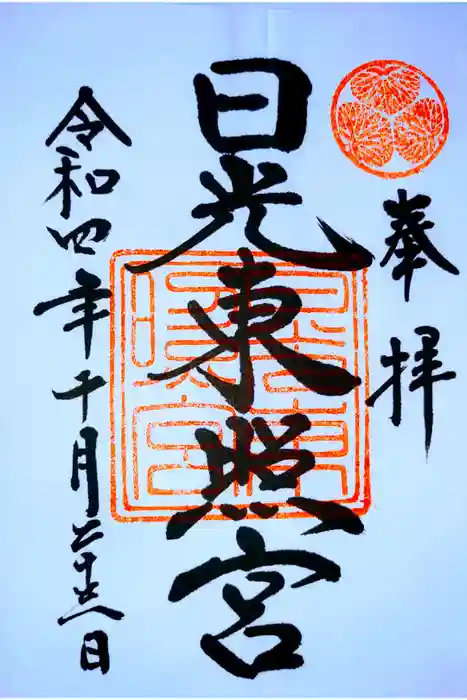 奉拝
日光東照宮
令和四年十月二十日